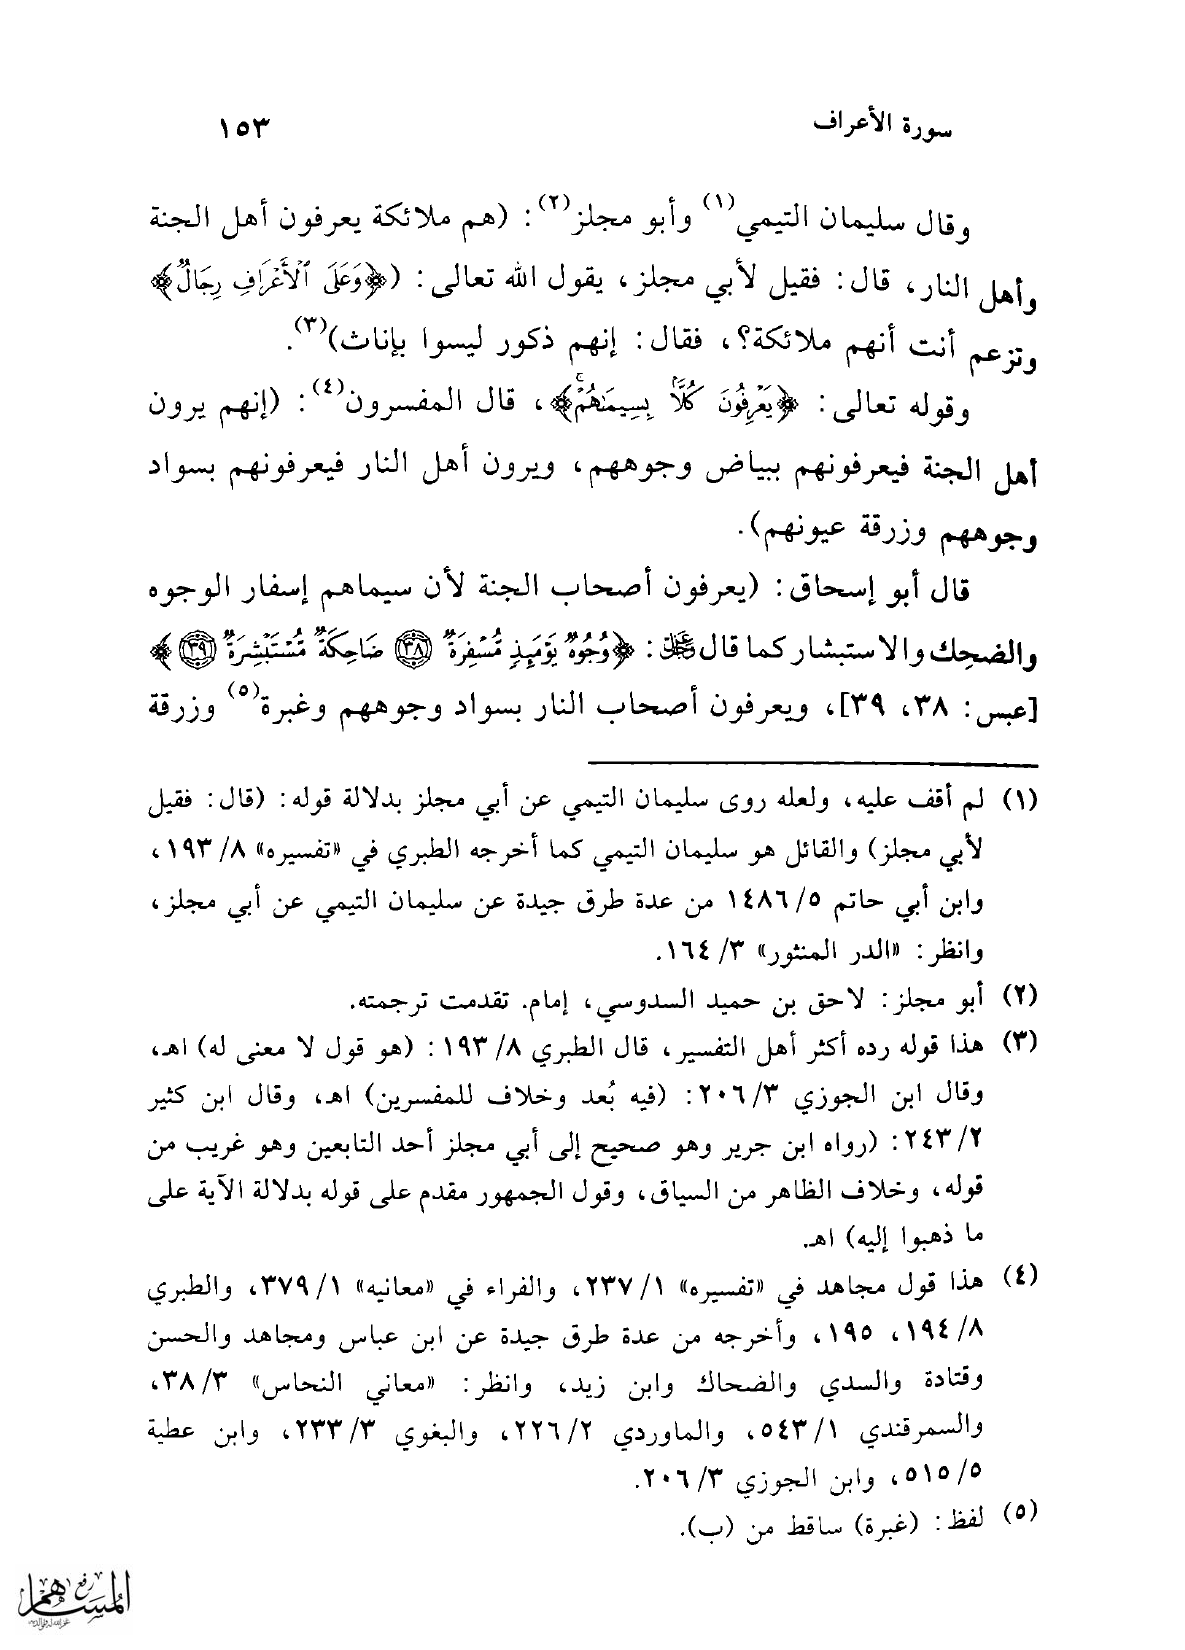 سورة الأعراف ١٥٣
وقال سليمان التيمي(١) وأبو مجلز(٢): (هم ملائكة يعرفون أهل الجنة
وأهل النار، قال: فقيل لأبي مجلز، يقول الله تعالى: (﴿وَعَلَى ٱلْأَعْرَافِ رِجَالٌ﴾
وتزعم أنت أنهم ملائكة؟، فقال: إنهم ذكور ليسوا بإناث)(٣).
وقوله تعالى: ﴿يَعْرِفُونَ كُلًّۢا بِسِيمَىٰهُمْۚ﴾، قال المفسرون(٤): (إنهم يرون
أهل الجنة فيعرفونهم ببياض وجوههم، ويرون أهل النار فيعرفونهم بسواد
وجوههم وزرقة عيونهم).
قال أبو إسحاق: (يعرفون أصحاب الجنة لأن سيماهم إسفار الوجوه
والضحِك والاستبشار كما قال عز وجل: ﴿وُجُوهٌ يَوْمَئِذٍ مُّسْفِرَةٌ ٣٨ ضَاحِكَةٌ مُّسْتَبْشِرَةٌ ٣٩﴾
[عبس: ٣٨، ٣٩]، ويعرفون أصحاب النار بسواد وجوههم وغبرة(٥) وزرقة
(١) لم أقف عليه، ولعله روى سليمان التيمي عن أبي مجلز بدلالة قوله: (قال: فقيل
لأبي مجلز) والقائل هو سليمان التيمي كما أخرجه الطبري في «تفسيره» ٨/ ١٩٣،
وابن أبي حاتم ٥/ ١٤٨٦ من عدة طرق جيدة عن سليمان التيمي عن أبي مجلز،
وانظر: «الدر المنثور» ٣/ ١٦٤.
(٢) أبو مجلز: لاحق بن حميد السدوسي، إمام. تقدمت ترجمته.
(٣) هذا قوله رده أكثر أهل التفسير، قال الطبري ٨/ ١٩٣: (هو قول لا معنى له) اهـ،
وقال ابن الجوزي ٣/ ٢٠٦: (فيه بُعد وخلاف للمفسرين) اهـ، وقال ابن كثير
٢/ ٢٤٣: (رواه ابن جرير وهو صحيح إلى أبي مجلز أحد التابعين وهو غريب من
قوله، وخلاف الظاهر من السياق، وقول الجمهور مقدم على قوله بدلالة الآية على
ما ذهبوا إليه) اهـ.
(٤) هذا قول مجاهد في «تفسيره» ١/ ٢٣٧، والفراء في «معانيه» ١/ ٣٧٩، والطبري
٨/ ١٩٤، ١٩٥، وأخرجه من عدة طرق جيدة عن ابن عباس ومجاهد والحسن
وقتادة والسدي والضحاك وابن زيد، وانظر: «معاني النحاس» ٣/ ٣٨،
والسمرقندي ١/ ٥٤٣، والماوردي ٢/ ٢٢٦، والبغوي ٣/ ٢٣٣، وابن عطية
٥/ ٥١٥، وابن الجوزي ٣/ ٢٠٦.
(٥) لفظ: (غبرة) ساقط من (ب).
رفع
المساهم